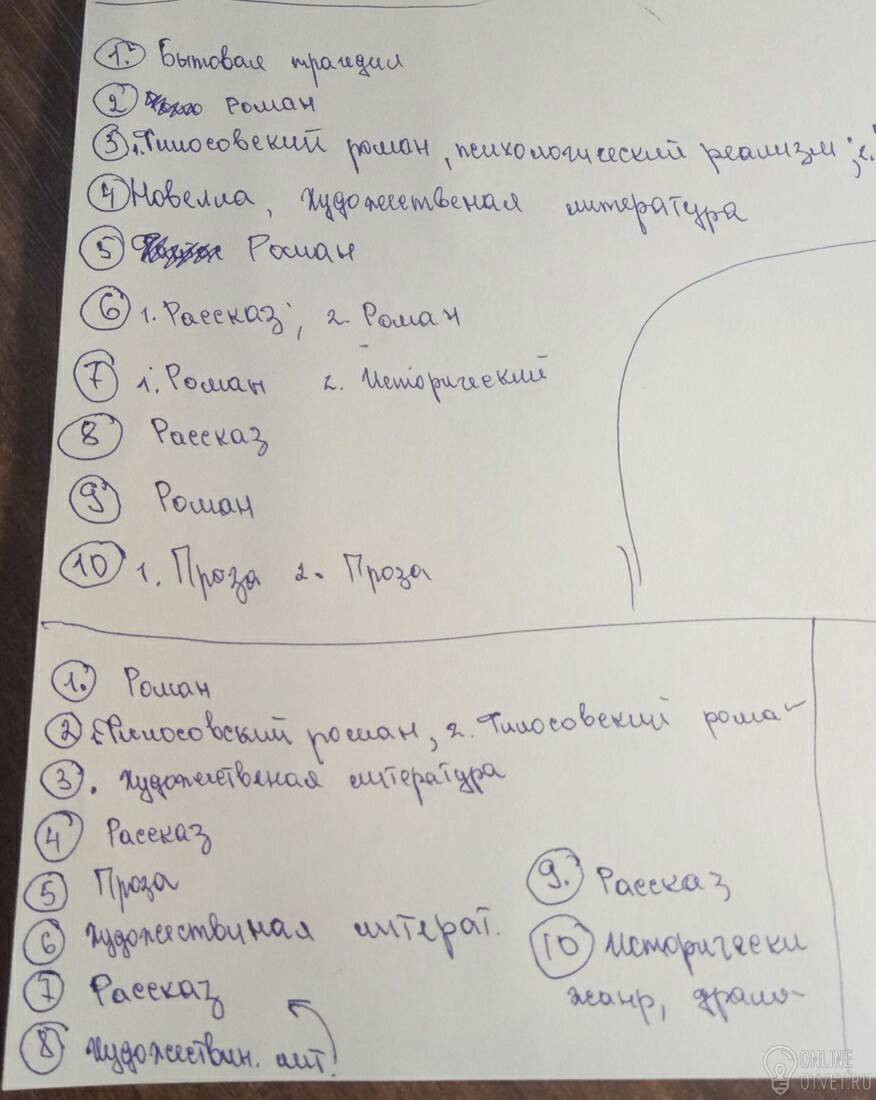 1. Бытовая трагедия
2 Роман
3 1. Филосовский роман, психологический реализм; 2.
4 Новелла, художественая литература
5 Роман
6 1. Рассказ; 2. Роман
7 1. Роман 2. Исторический
8 Рассказ
9 Роман
10 1. Проза 2. Проза
1. Роман
2 1. Филосовский роман, 2. Филосовский рома
3. художественая литература
4 Рассказ
5 Проза
6 художествиная литерат.
7 Рассказ
8 художествин. лит.
9. Рассказ
10 Исторически
жанр,
ONLINE
OTVET.RU